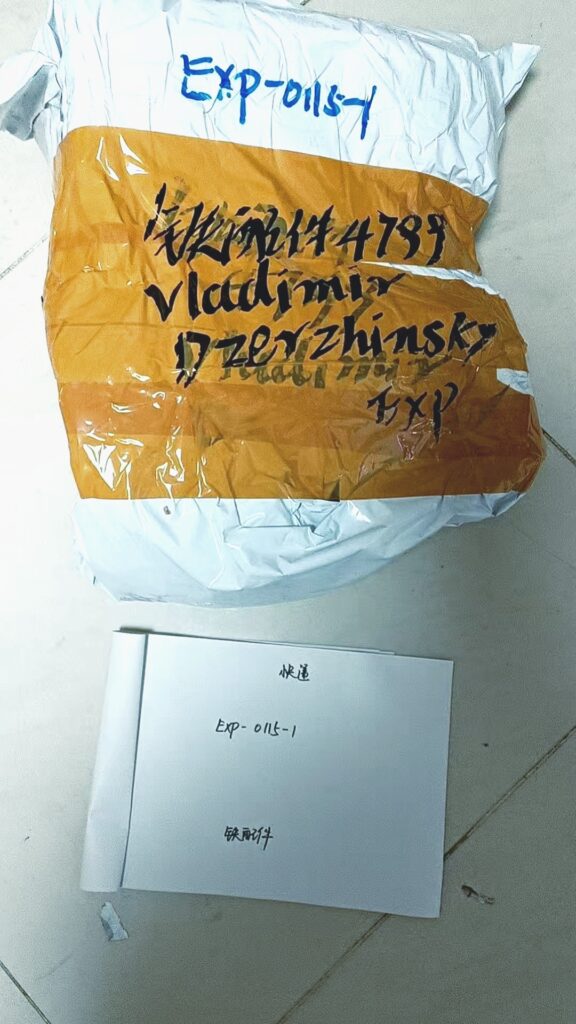 EXP-0115-1
铁配件4799
Vladimir
Dzerzhinsky
EXP
快递
EXP-0115-1
铁配件